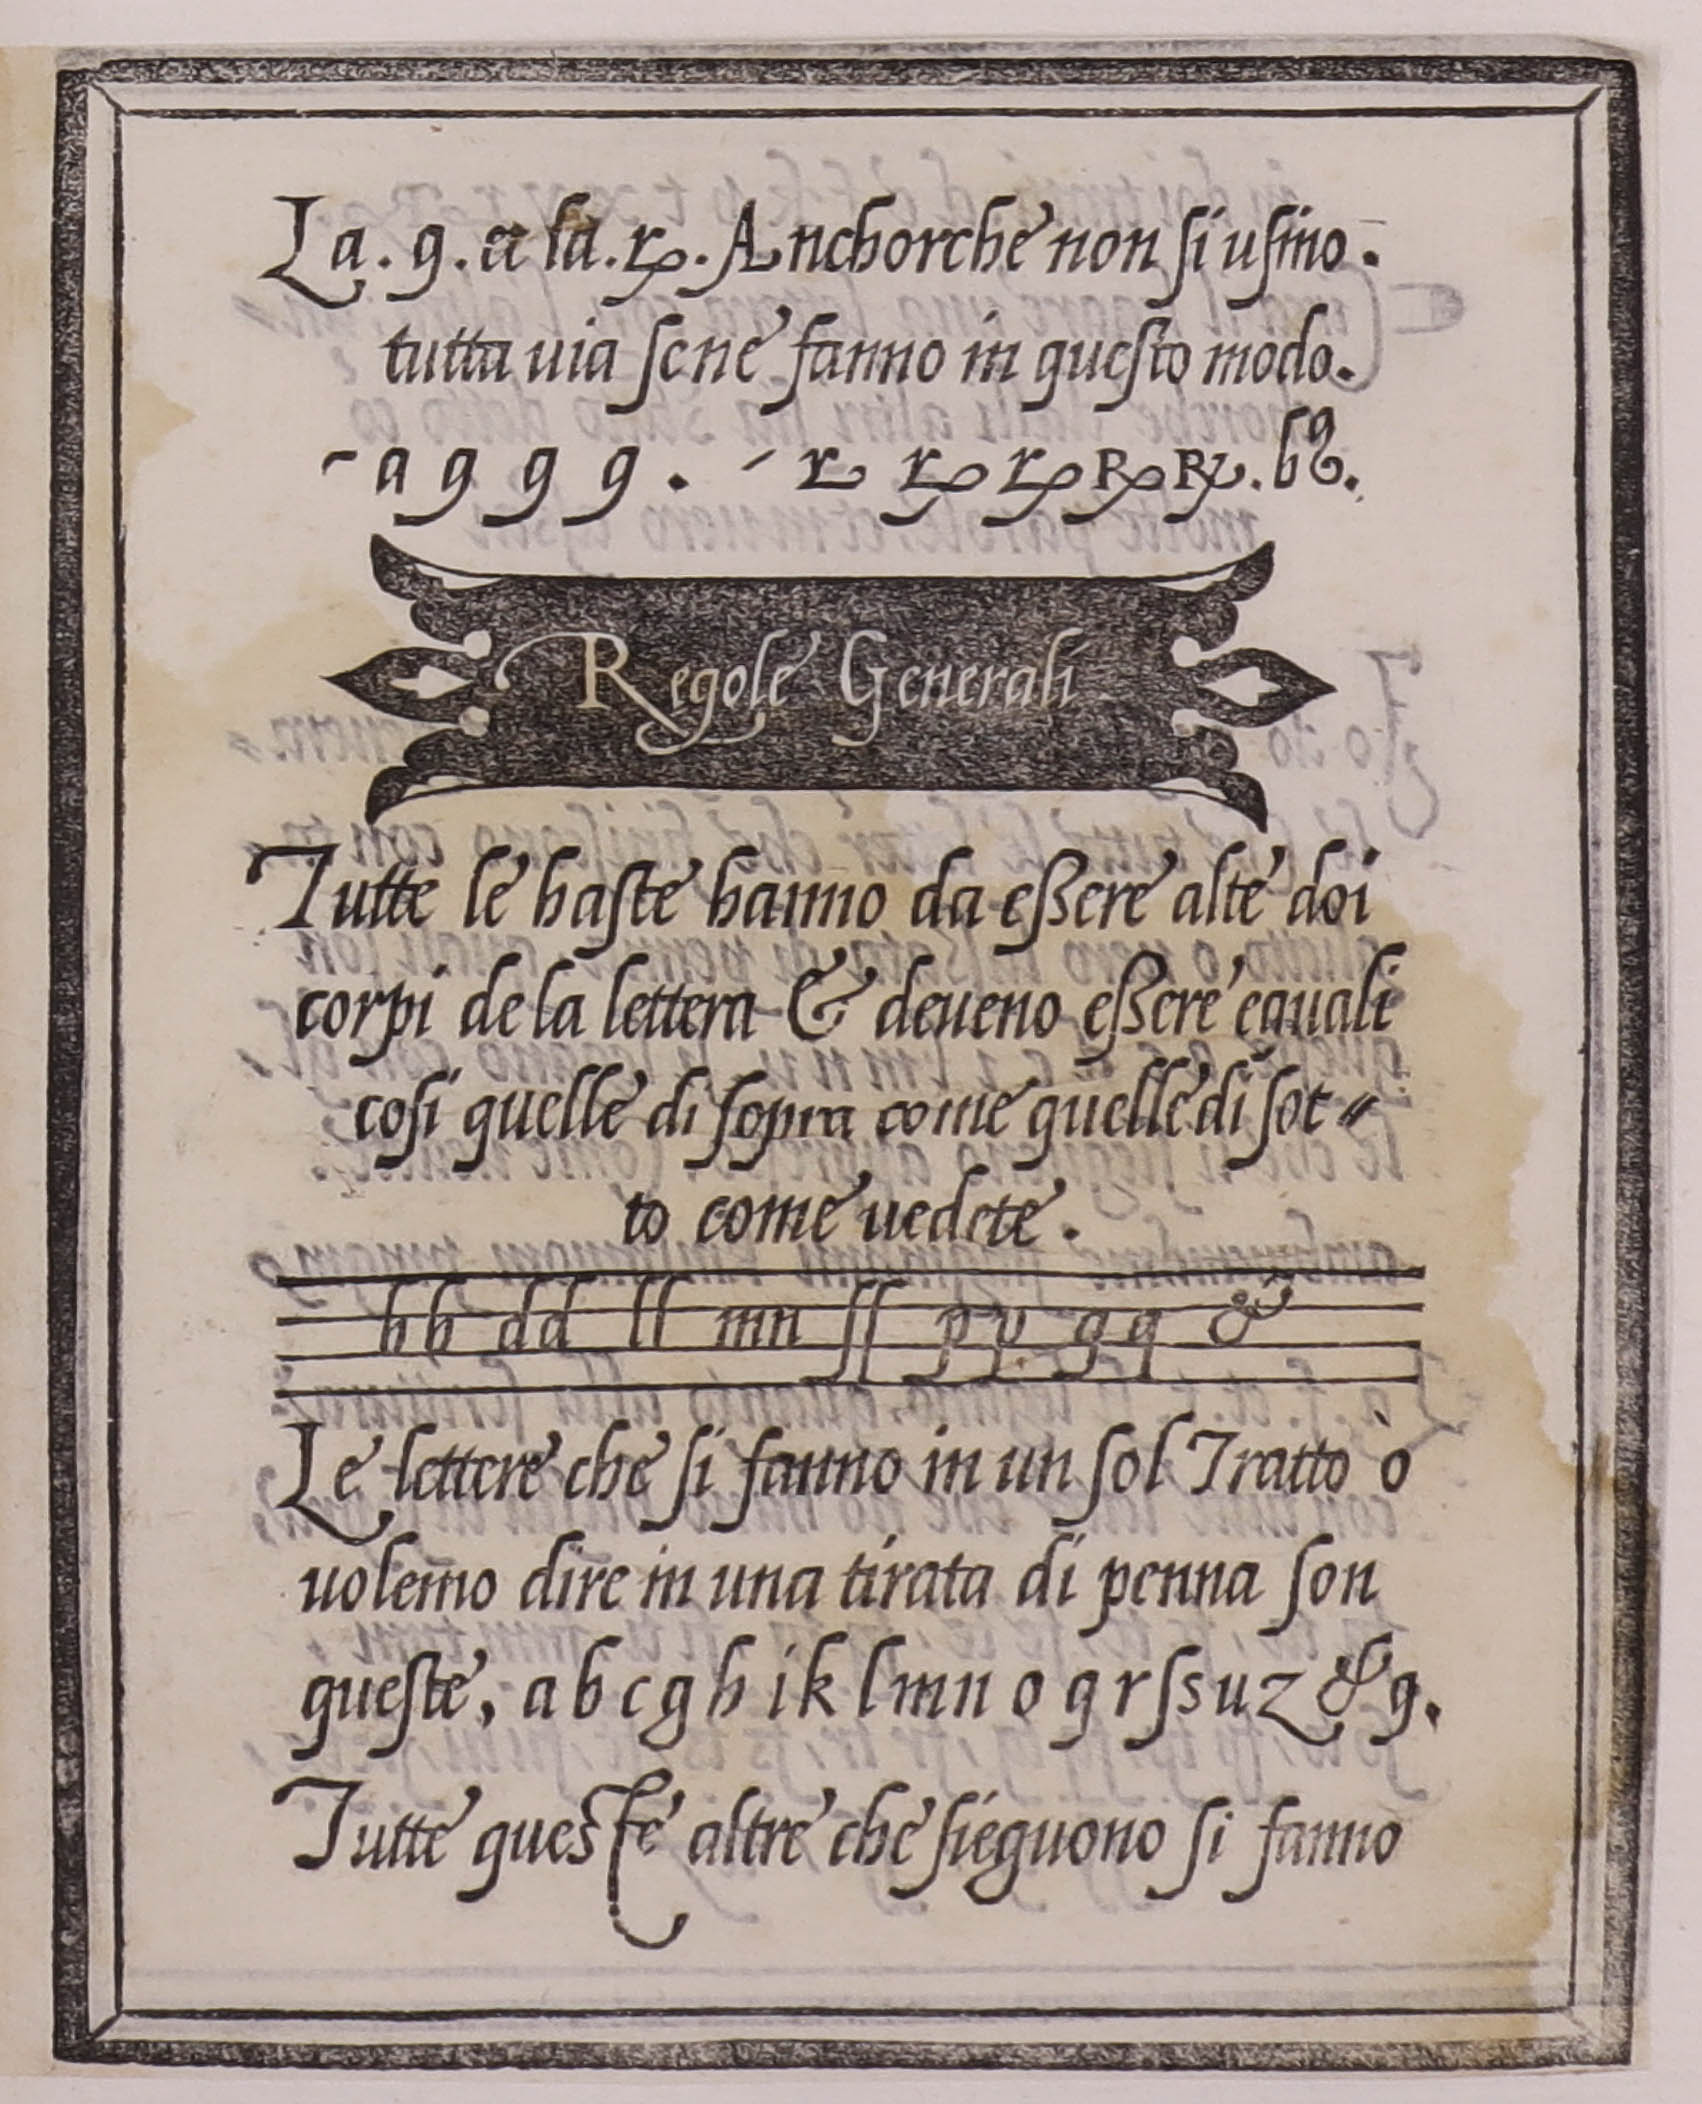 La . 9 . et la . ꝝ . Anchorche non si usino .
tutta uia sene fanno in questo modo.
a 9 9 9 9 . ꝛ ꝝ ꝝ ℞ ℞ .
Regole Generali
Tutte le haste hanno da eßere alte doi
corpi de la lettera & deueno eßere equali
cosi quelle di sopra come quelle di sot〃
to come uedete .
h b d d l l m n ſ ſ p y g q &
Le lettere che si fanno in un sol Tratto ò
uolemo dire in una tirata di penna son
queste, a b c g h i k l m n o q r ſ s u z & 9 .
Tutte queste altre che sieguono si fanno